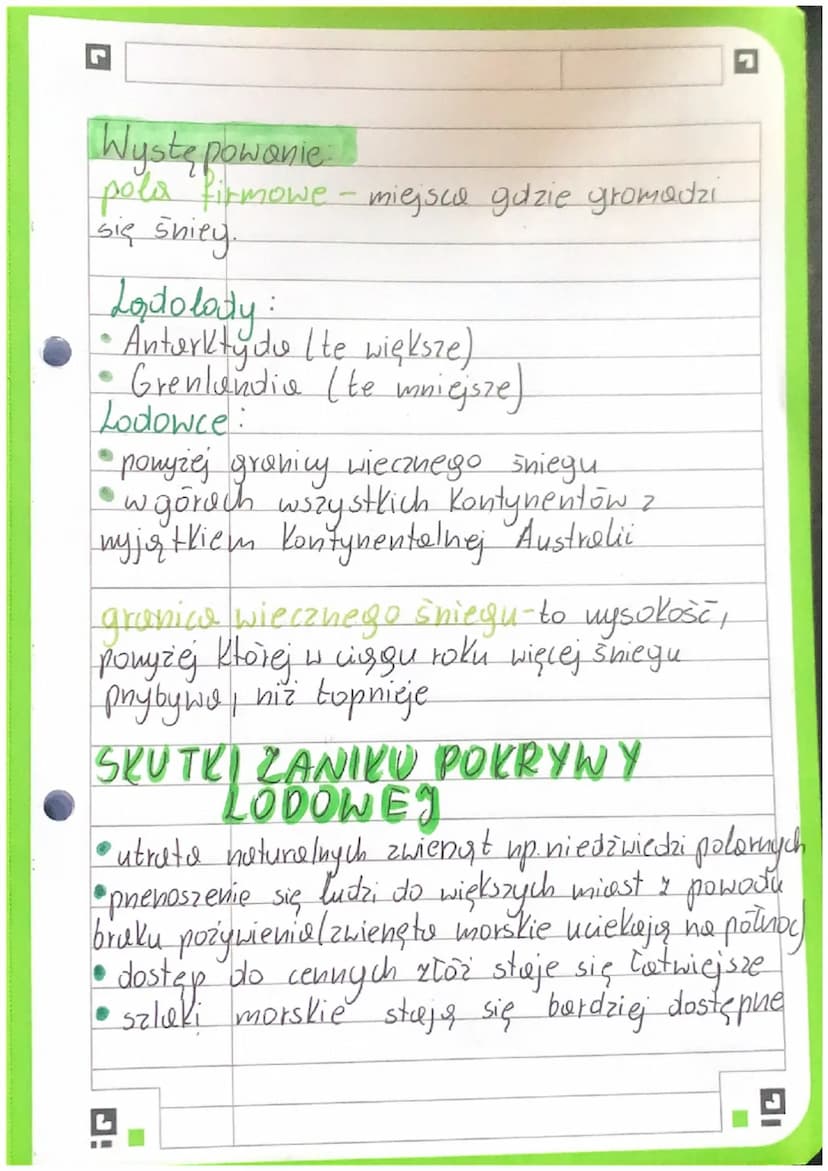 Występowanie:
pola firmowe - miejsca gdzie gromadzi
się śnieg.
Lądolody:
• Antarktyda (te większe)
• Grenlandia (te mniejsze)
Lodowce:
• powyżej granicy wiecznego śniegu
• w górach wszystkich kontynentów z
wyjątkiem kontynentalnej Australii
granica wiecznego śniegu-to wysokość,
powyżej której w ciągu roku więcej śniegu
przybywa, niż topnieje
SKUTKI ZANIKU POKRYWY
LODOWEJ
• utrata naturalnych zwierząt np. niedźwiedzi polarnych
• przenoszenie się ludzi do większych miast z powodu
braku pożywienia (zwierzęta morskie uciekają na północ)
• dostęp do cennych złóż staje się łatwiejsze
• szlaki morskie stają się bardziej dostępne